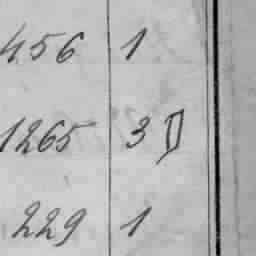 456 1
1265 3
229 1